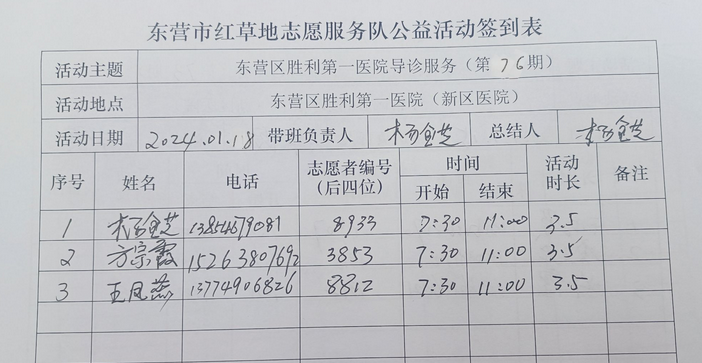 东营市红草地志愿服务队公益活动签到表
活动主题 东营区胜利第一医院导诊服务（第 76 期）
活动地点 东营区胜利第一医院（新区医院）
活动日期 2024.01.18 带班负责人 杨金芝 总结人 杨金芝
序号 姓名 电话 志愿者编号（后四位） 时间 开始 结束 活动时长 备注
1 杨金芝 13854679081 8933 7:30 11:00 3.5
2 方宗霞 15263807692 3853 7:30 11:00 3.5
3 王凤燕 13774906826 8812 7:30 11:00 3.5